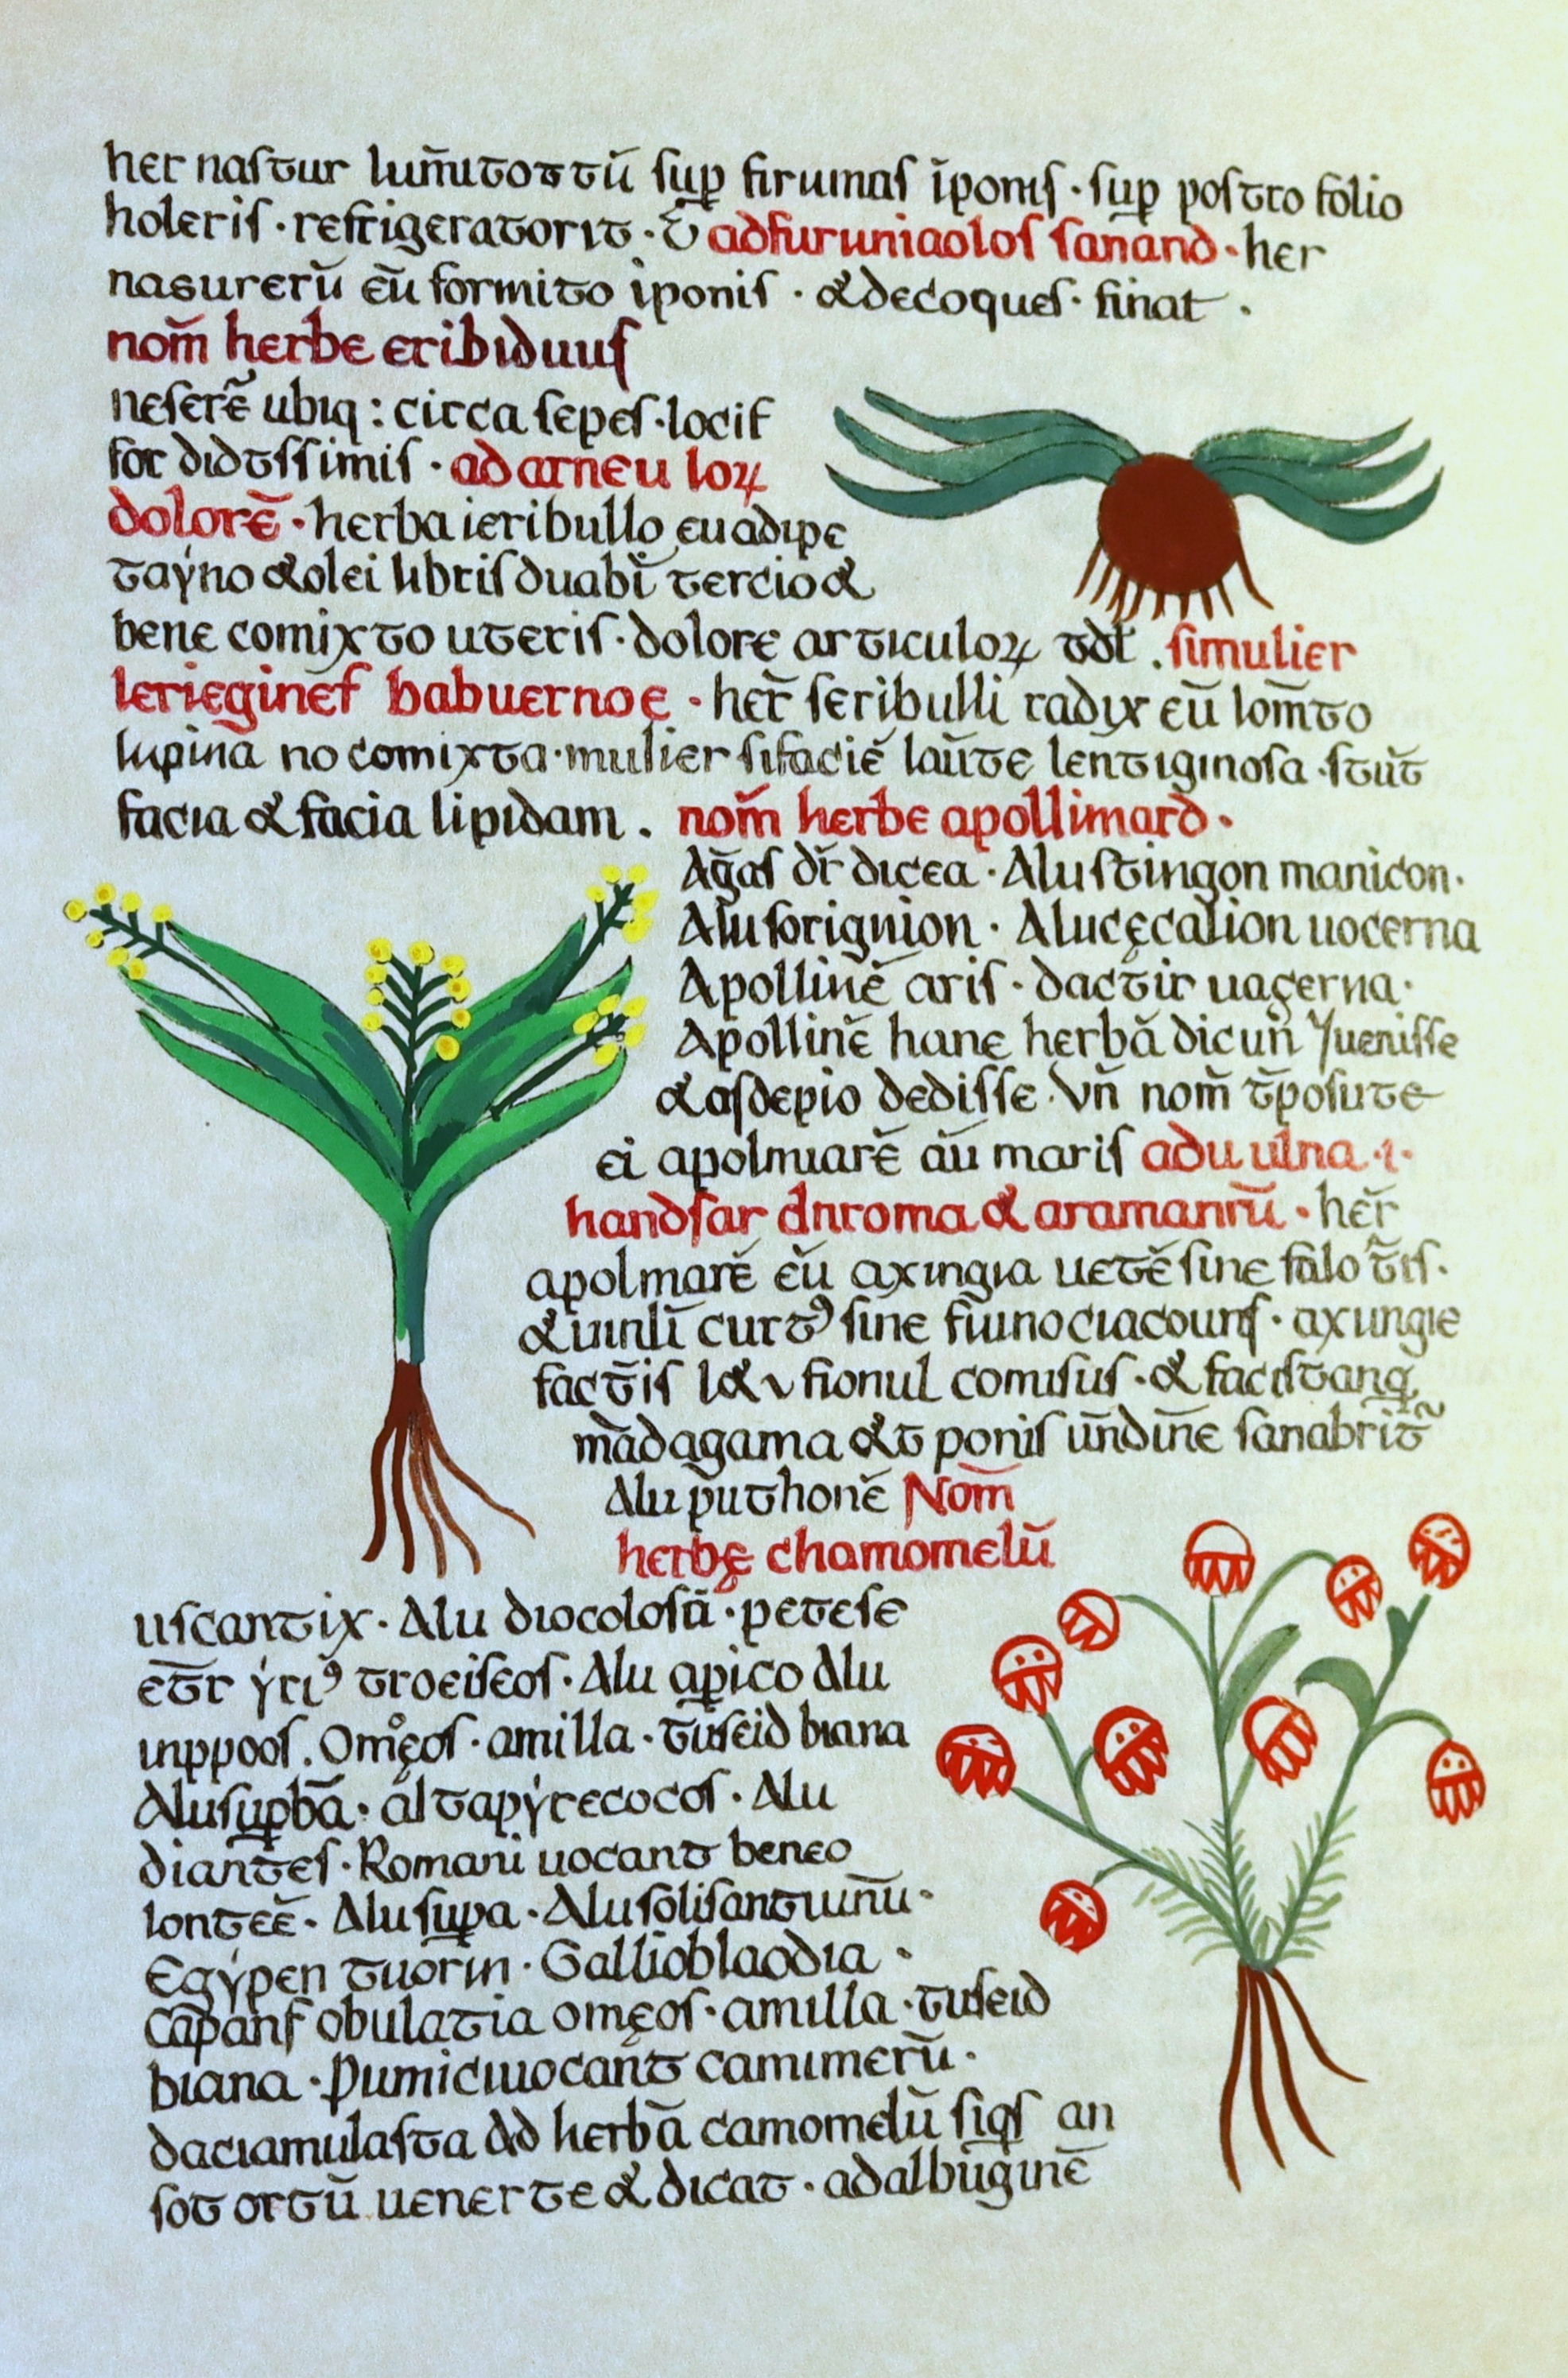 her naſtur lum̄itottū ſup ſtrumaſ īponıſ · ſup poſtto folio
holeriſ · refrigeratorıt · & adfuruniaoloſ ſanand · her
nasurerū cū formito iponiſ · &decoqueſ · finat ·
nom̄ herbe eribiduuſ
neſerē ubıq : circa ſepeſ · locif
for didtſſimiſ · ad arneu loꝝ
dolorē · herba ieribullo cu adıpe
taẏno &olei libriſ duabꝰ tercio &
bene comixto uteriſ · dolore articuloꝝ tdt̄ . ſimulier
lerieginef babuernoe · her̄ ſeribulli radıx cū lom̄to
lupina no comixta · mulier ſifaciē laūte lentıgınoſa · ſtūt
facıa & facia lipıdam . nom̄ herbe apollimard ·
Aḡaſ dr̄ dıcea · Aluſtingon manicon ·
Aluſorignion · Alucęcalion uocerna
Apollinē ariſ · dactır uaçerna ·
Apollinē hanc herbā dicun̄ Juenıſſe
&aſdepio dediſſe · Vn̄ nom̄ t̄poſuıte
ei apolmıarē aū mariſ adu ulna · ı ·
handſar dnroma & aramanrū · her̄
apolmarē cū axıngıa uetē ſine ſalo t̄ıſ ·
&uınlī curtꝰ ſine fūınocıacounſ · axungie
fact̄is l&v fionul comıſuſ · & facıſtang
mādagama &t poniſ un̄dīne ſanabrit̄
Alu p̄uthonē Nom̄
herbę chamomelū
uſcantix · Alu dıocoloſā · peteſe
et̄r ẏrıꝰ troeiſeoſ · Alu apico Alu
ınppooſ . Omęoſ · amilla · tūſeid bıana
Aluſupbā · al tapẏrecocoſ · Alu
diant̄eſ · Romani uocant beneo
longeē · Aluſupa · Aluſoliſantuınū ·
Egẏpen tuorın · Gallioblaodıa ·
Cāpanſ obulatia omęoſ · amılla · tuſeıd
bıana · Pumicıuocan̄t camımerū ·
dacıamulaſta Ad herbā camomelū ſiqſ an
ſot ortū uener te & dıcat · adalbūgınē